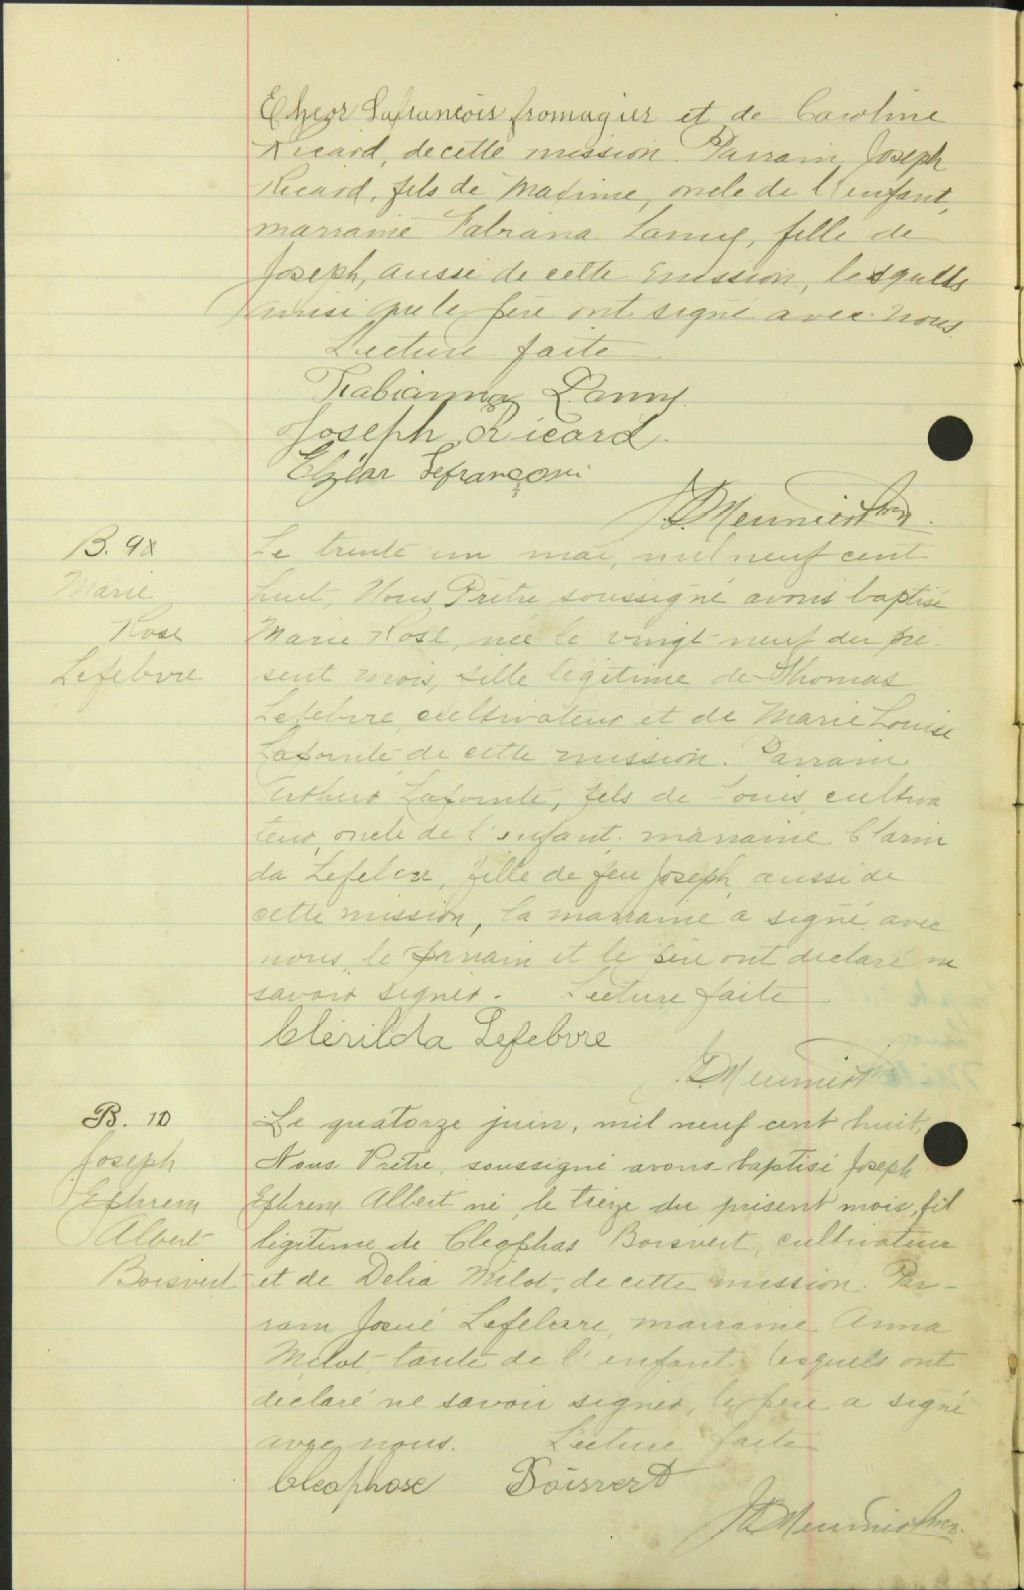 Elzeor Lafrancois fromagier et de Caroline
Ricard, de cette mission. Parrain, Joseph
Ricard, fils de Maxime, oncle de l'enfant,
marraine Fabiana Lamy, fille de
Joseph, aussi de cette mission, lesquels
ainsi que le père ont signé avec nous.
Lecture faite
Fabianna Lamy
Joseph Ricard.
Elzéar Lefrançois
Meunier Ptre
B. 9
Marie
Rose
Lefebvre
Le trente un mai, mil neuf cent
huit, Nous Prêtre soussigné avons baptisé
Marie Rose, née le vingt-neuf du pré-
sent mois, fille légitime de Thomas
Lefebvre, cultivateur et de Marie Louise
Lapointe de cette mission. Parrain
Arthur Lapointe, fils de Louis, cultiva
teur, oncle de l'enfant, marraine Clarin
da Lefebvre, fille de feu Joseph, aussi de
cette mission, la marraine a signé avec
nous, le parrain et le père ont déclaré ne
savoir signer. Lecture faite
Clérilda Lefebvre
Meunier Ptre
B. 10
Joseph
Ephrem
Albert
Boisvert
Le quatorze juin, mil neuf cent huit,
Nous Prêtre, soussigné avons baptisé Joseph
Ephrem Albert né le treize du présent mois, fil
légitime de Cleophas Boisvert, cultivateur
et de Delia Milot, de cette mission. Par-
rain Josué Lefebvre, marraine Anna
Milot, tante de l'enfant, lesquels ont
déclaré ne savoir signer, le père a signé
avec nous. Lecture faite
Cleophose Boisvert
Meunier